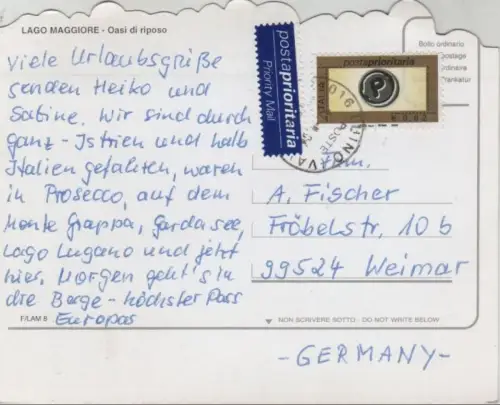 LAGO MAGGIORE - Oasi di riposo
Viele Urlaubsgrüße
senden Heiko und
Sabine. Wir sind durch
ganz - Istrien und halb
Italien gefahren, waren
in Prosecco, auf dem
Monte Grappa, Gardasee,
Lago Lugano und jetzt
hier. Morgen geht's in
die Berge - höchster Pass
Europas
F/LAM 8
postaprioritaria
Priority Mail
postaprioritaria
ITALIA
P
€ 0,62
Bollo ordinario
postage
Fam.
A. Fischer
Fröbelstr. 10 b
99524 Weimar
NON SCRIVERE SOTTO - DO NOT WRITE BELOW
- GERMANY -